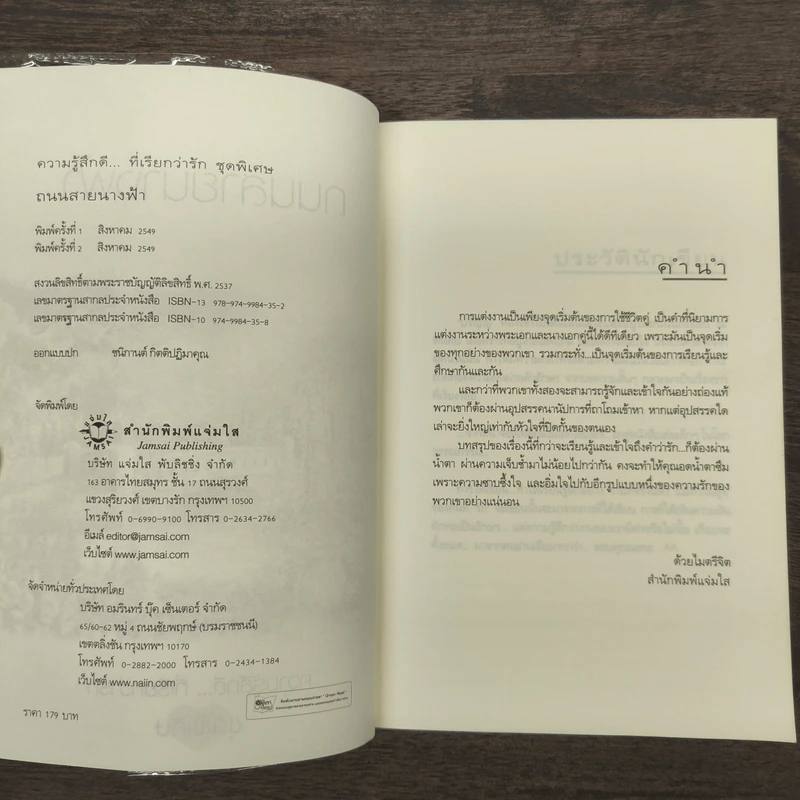 ความรู้สึกดี... ที่เรียกว่ารัก ชุดพิเศษ
ถนนสายนางฟ้า
พิมพ์ครั้งที่ 1 สิงหาคม 2549
พิมพ์ครั้งที่ 2 สิงหาคม 2549
สงวนลิขสิทธิ์ตามพระราชบัญญัติลิขสิทธิ์ พ.ศ. 2537
เลขมาตรฐานสากลประจำหนังสือ ISBN-13 978-974-9984-35-2
เลขมาตรฐานสากลประจำหนังสือ ISBN-10 974-9984-35-8
ออกแบบปก ชนิกานต์ กิตติปฎิมาคุณ
จัดพิมพ์โดย
สำนักพิมพ์แจ่มใส
Jamsai Publishing
บริษัท แจ่มใส พับลิชชิ่ง จำกัด
163 อาคารไทยสมุทร ชั้น 17 ถนนสุรวงศ์
แขวงสุริยวงศ์ เขตบางรัก กรุงเทพฯ 10500
โทรศัพท์ 0-6990-9100 โทรสาร 0-2634-2766
อีเมล์ editor@jamsai.com
เว็บไซต์ www.jamsai.com
จัดจำหน่ายทั่วประเทศโดย
บริษัท อมรินทร์ บุ๊ค เซ็นเตอร์ จำกัด
65/60-62 หมู่ 4 ถนนชัยพฤกษ์ (บรมราชชนนี)
เขตตลิ่งชัน กรุงเทพฯ 10170
โทรศัพท์ 0-2882-2000 โทรสาร 0-2434-1384
เว็บไซต์ www.naiin.com
ราคา 179 บาท
คำนำ
การแต่งงานเป็นเพียงจุดเริ่มต้นของการใช้ชีวิตคู่ เป็นคำที่นิยามการ
แต่งงานระหว่างพระเอกและนางเอกคู่นี้ได้ดีทีเดียว เพราะมันเป็นจุดเริ่ม
ของทุกอย่างของพวกเขา รวมกระทั่ง...เป็นจุดเริ่มต้นของการเรียนรู้และ
ศึกษากันและกัน
และกว่าที่พวกเขาทั้งสองจะสามารถรู้จักและเข้าใจกันอย่างถ่องแท้
พวกเขาก็ต้องผ่านอุปสรรคนานัปการที่ถาโถมเข้าหา หากแต่อุปสรรคใด
เล่าจะยิ่งใหญ่เท่ากับหัวใจที่ปิดกั้นของตนเอง
บทสรุปของเรื่องนี้ที่กว่าจะเรียนรู้และเข้าใจถึงคำว่ารัก...ก็ต้องผ่าน
น้ำตา ผ่านความเจ็บช้ำมาไม่น้อยไปกว่ากัน คงจะทำให้คุณอดน้ำตาซึม
เพราะความซาบซึ้งใจ และอิ่มใจไปกับอีกรูปแบบหนึ่งของความรักของ
พวกเขาอย่างแน่นอน
ด้วยไมตรีจิต
สำนักพิมพ์แจ่มใส